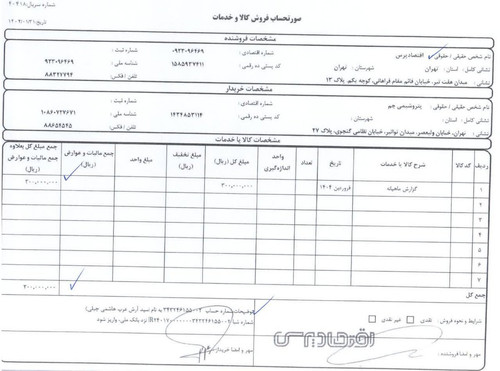 صورتحساب فروش کالا و خدمات
شماره سریال: ۲۰۴۱۸
تاریخ: ۱۴۰۴/۰۱/۳۱
مشخصات فروشنده
نام شخص حقیقی / حقوقی: اقتصاد پرس شماره اقتصادی: ۰۹۲۳۰۹۶۴۶۹ شماره ثبت:
نشانی کامل: استان: تهران شهرستان: تهران کد پستی ده رقمی: ۱۵۸۵۹۳۷۲۱۱ شناسه ملی: ۰۹۲۳۰۹۶۴۶۹
نشانی: میدان هفت تیر، خیابان قائم مقام فراهانی، کوچه یکم، پلاک ۱۳ تلفن / فکس: ۸۸۳۲۷۷۹۴
مشخصات خریدار
نام شخص حقیقی / حقوقی: پتروشیمی جم شماره اقتصادی: شماره ثبت:
نشانی کامل: استان: شهرستان: جم کد پستی ده رقمی: ۱۴۳۴۸۵۳۱۱۴ شناسه ملی: ۱۰۸۶۰۷۲۷۶۷۱
نشانی: تهران، خیابان ولیعصر، میدان نوانیر، خیابان نظامی گنجوی، پلاک ۲۷ تلفن / فکس: ۸۸۶۵۴۵۴۵
مشخصات کالا یا خدمات
ردیف کد کالا شرح کالا یا خدمات تاریخ تعداد واحد اندازه‌گیری مبلغ کل (ریال) مبلغ تخفیف (ریال) مبلغ واحد جمع مالیات و عوارض (ریال) جمع مبلغ کل بعلاوه جمع مالیات و عوارض (ریال)
۱ گزارش ماهیانه فروردین ۱۴۰۴ ۳۰۰,۰۰۰,۰۰۰ ۳۰۰,۰۰۰,۰۰۰
۲
۳
۴
۵
۶
۷
جمع کل ۳۰۰,۰۰۰,۰۰۰
شرایط و نحوه فروش: نقدی غیر نقدی توضیحات: شماره حساب به نام سید آرش عرب هاشمی جبلی)
نزد بانک ملی، واریز شود
اقتصادپرس
مهر و امضا فروشنده: مهر و امضا خریدار: